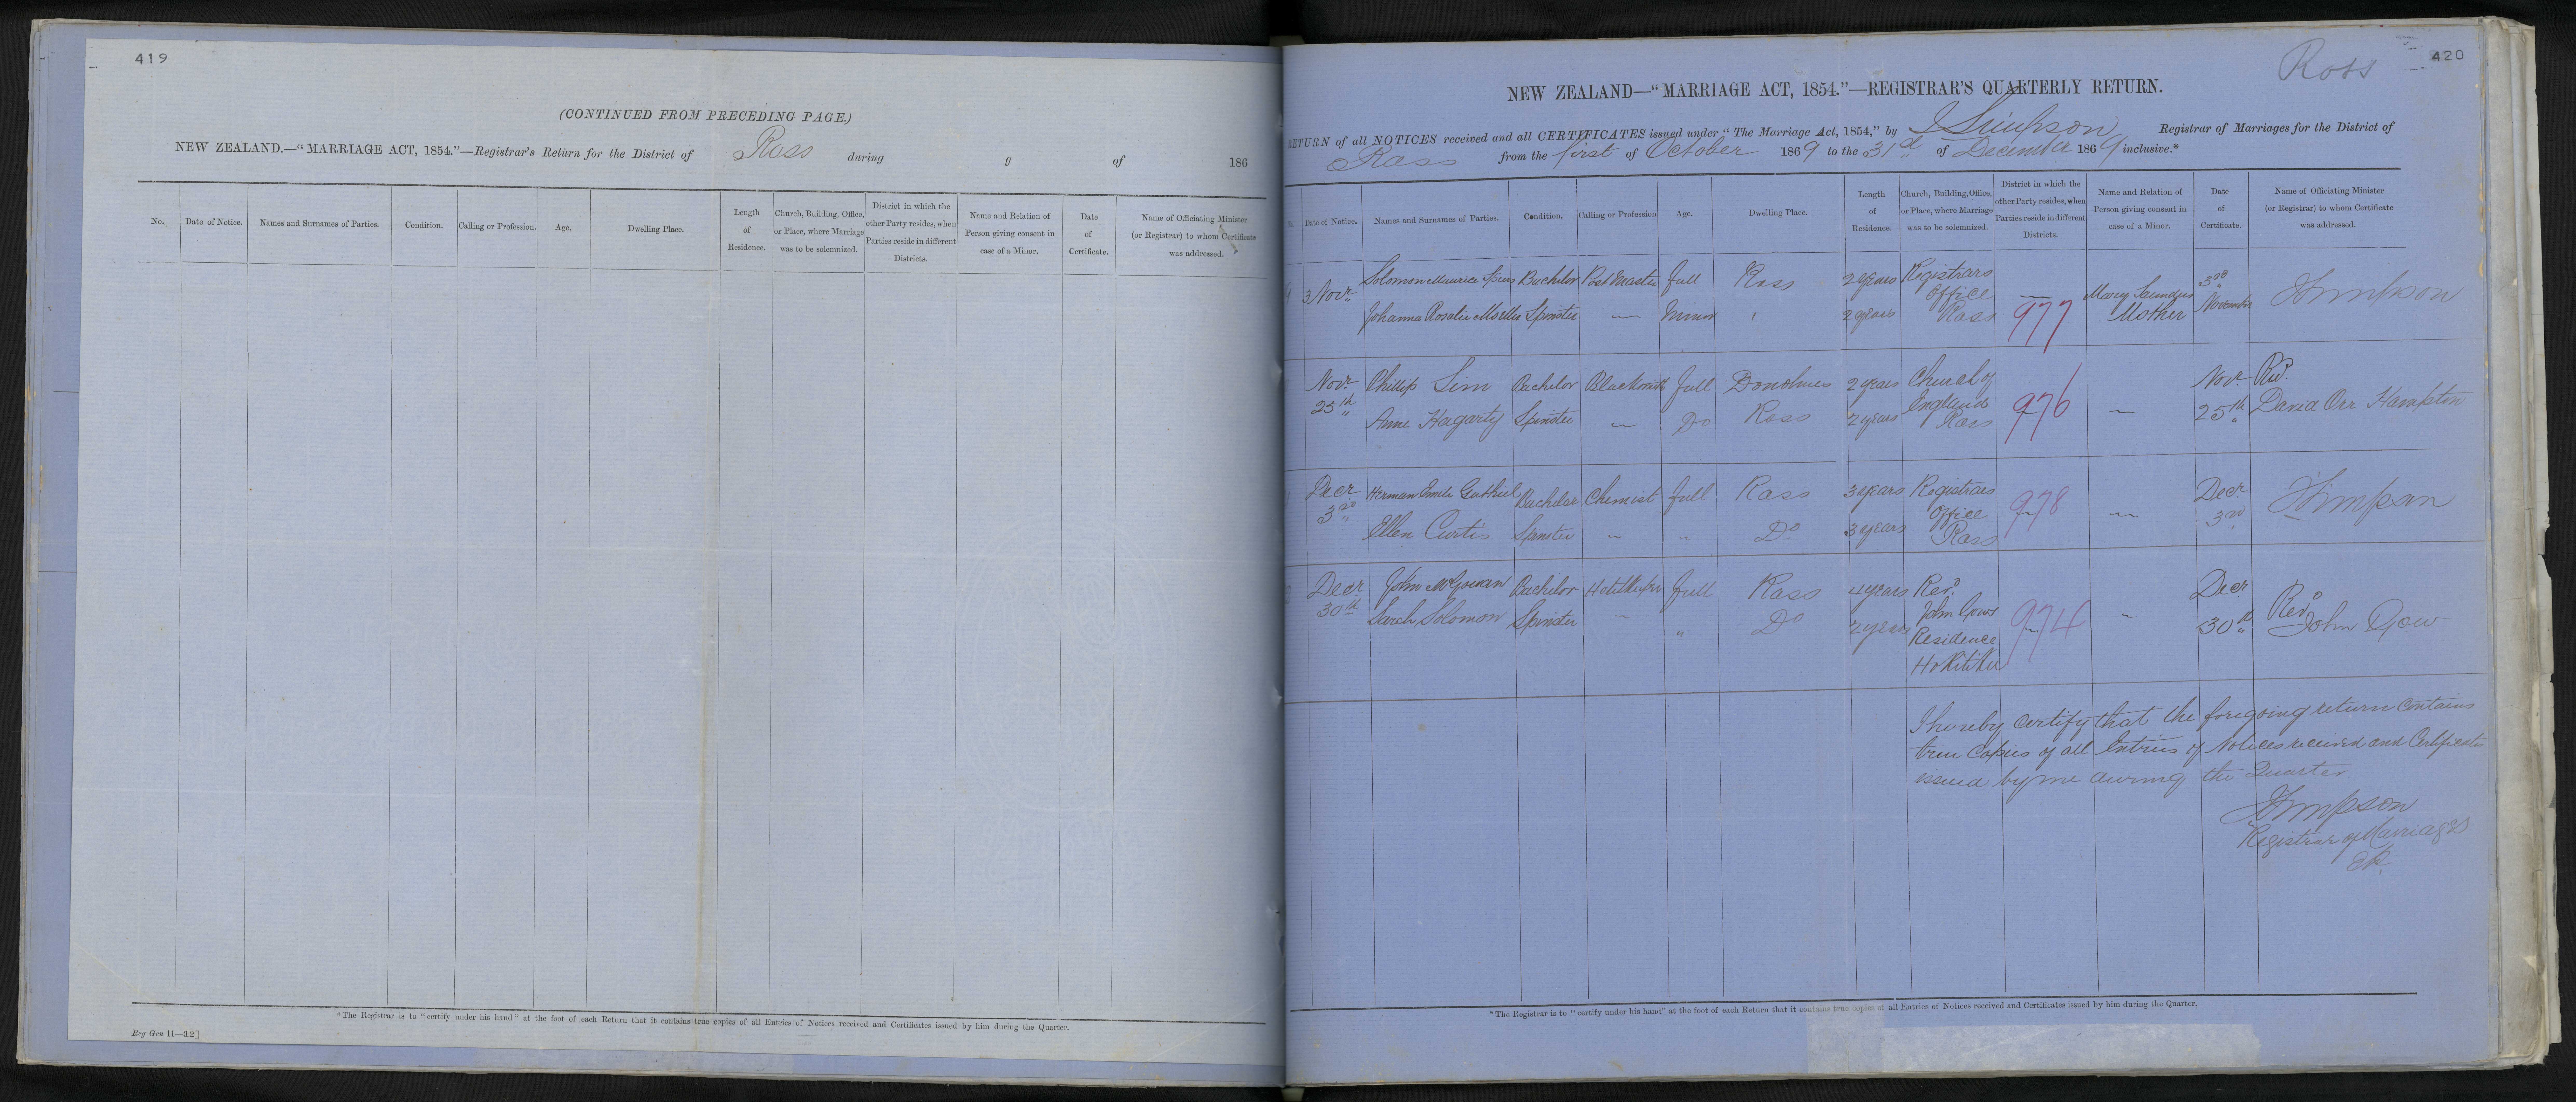 419
(CONTINUED FROM PRECEDING PAGE.)
NEW ZEALAND.—"MARRIAGE ACT, 1854."—Registrar's Return for the District of Ross during 9 of 186
No. Date of Notice. Names and Surnames of Parties. Condition. Calling or Profession. Age. Dwelling Place. Length of Residence. Church, Building, Office, or Place, where Marriage was to be solemnized. District in which the other Party resides, when Parties reside in different Districts. Name and Relation of Person giving consent in case of a Minor. Date of Certificate. Name of Officiating Minister (or Registrar) to whom Certificate was addressed.
*The Registrar is to "certify under his hand" at the foot of each Return that it contains true copies of all Entries of Notices received and Certificates issued by him during the Quarter.
Reg Gen 11—32]
420
Ross
NEW ZEALAND—"MARRIAGE ACT, 1854."—REGISTRAR'S QUARTERLY RETURN.
RETURN of all NOTICES received and all CERTIFICATES issued under "The Marriage Act, 1854," by J Simpson Registrar of Marriages for the District of
Ross from the first of October 1869 to the 31st of December 1869 inclusive.*
Date of Notice. Names and Surnames of Parties. Condition. Calling or Profession Age. Dwelling Place. Length of Residence. Church, Building, Office, or Place, where Marriage was to be solemnized. District in which the other Party resides, when Parties reside in different Districts. Name and Relation of Person giving consent in case of a Minor. Date of Certificate. Name of Officiating Minister (or Registrar) to whom Certificate was addressed.
3 Novr Solomon Maurice Spiers Bachelor Post Master full Ross 2 years Registrars Office Ross — 977 Mary Saunders Mother 3rd November JSimpson
Johanna Rosalie Spinster — Minor 2 years
Novr 25th Phillip Sim Bachelor Blacksmith full Donohues 2 years Church of England Ross 976 — Novr 25th Revd. David Orr Hampton
Anne Hagarty Spinster — Do Ross 2 years
Decr 3rd Herman Emile Guthiel Bachelor Chemist full Ross 3 years Registrars Office Ross 978 — Decr 3rd JSimpson
Ellen Curtis Spinster — " Do 3 years
Decr 30th John McGowan Bachelor Hotelkeeper full Ross 4 years Revd. John Gows Residence Hokitika 974 — Decr 30th Revd John Gow
Sarah Solomon Spinster — " Do 2 years
I hereby certify that the foregoing return contains
true Copies of all Entries of Notices received and Certificates
issued by me during the Quarter
JSimpson
Registrar of Marriages
*The Registrar is to "certify under his hand" at the foot of each Return that it contains true copies of all Entries of Notices received and Certificates issued by him during the Quarter.